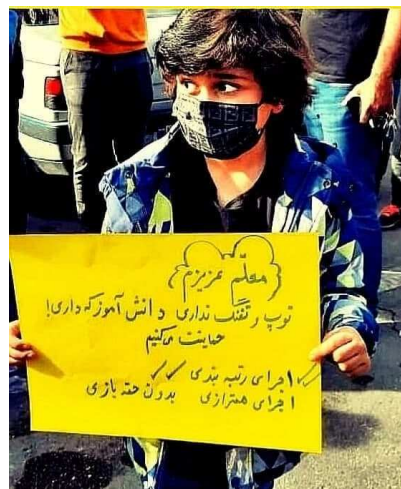 معلّم عزیزم
توپ و تفنگ نداری دانش آموز که داری!
حمایتت می‌کنیم
اجرای رتبه بندی
اجرای همترازی بدون حقه بازی